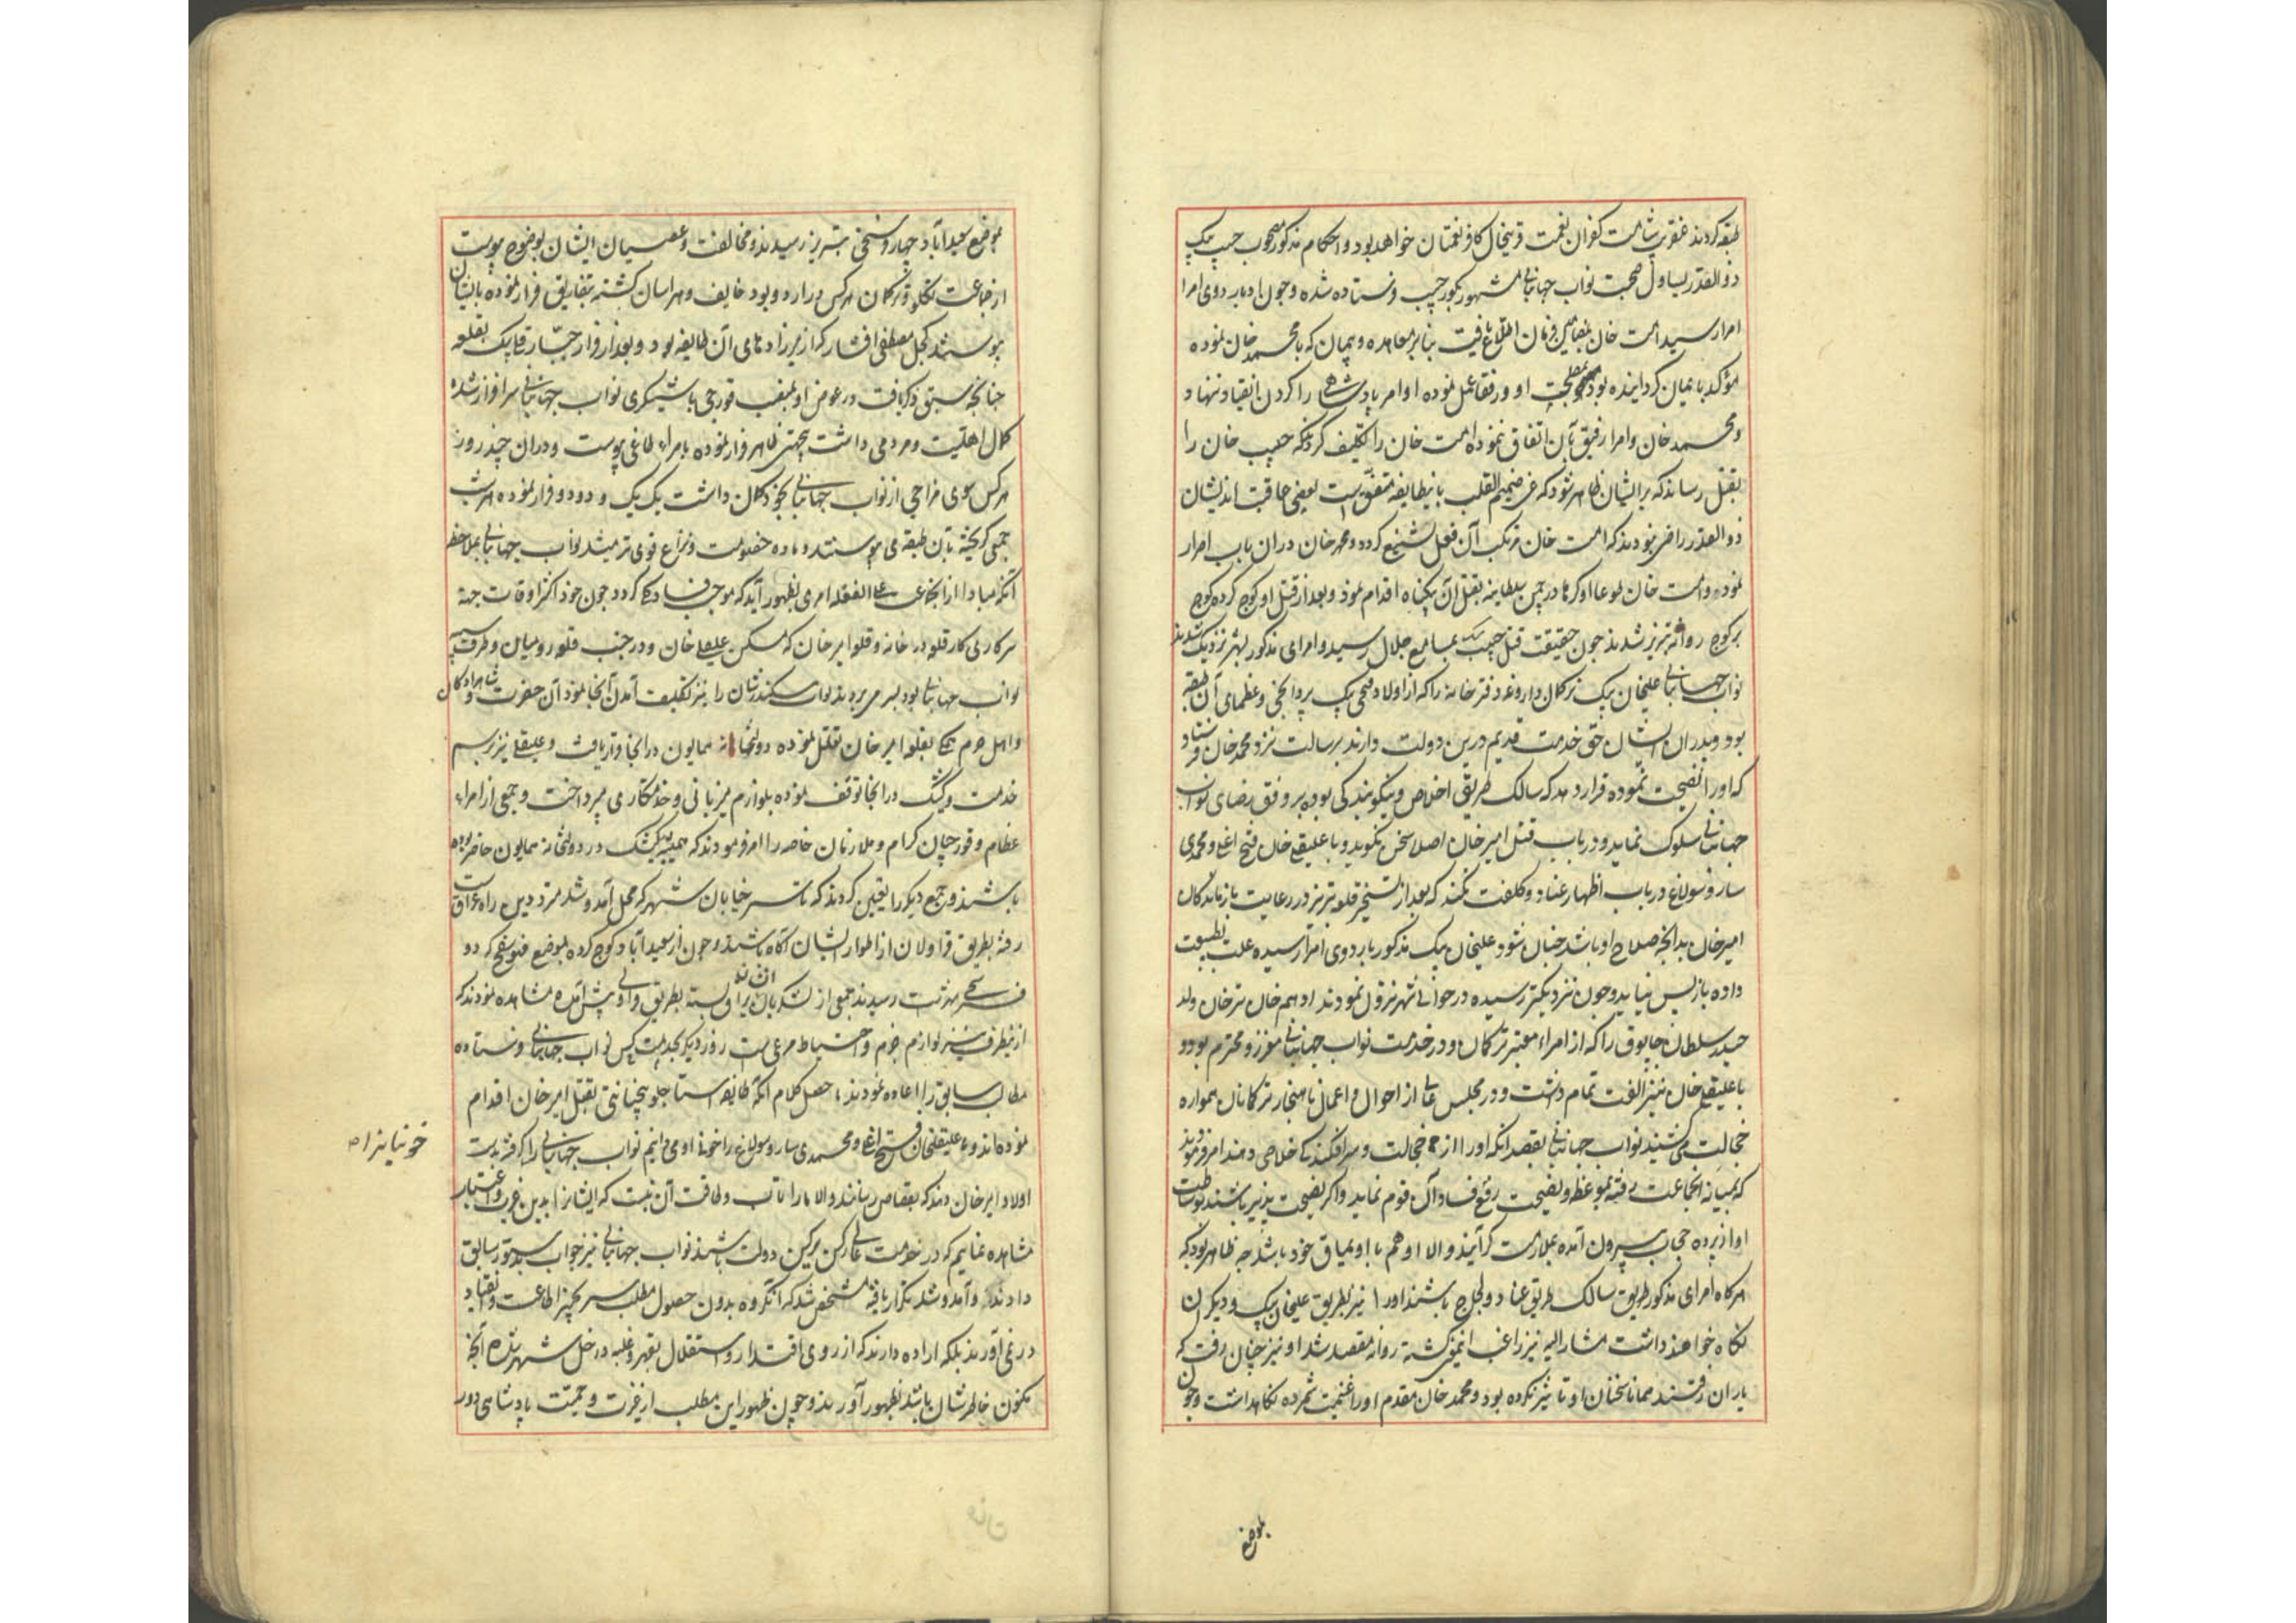 طبقه کردند عنقریب شامت کفران نعمت قرینحال کافر نعمتان خواهد بود و احکام مذکور مصحوب حبیب بیک
ذوالقدر یساول صحبت نواب جهانبانی مشهور بکور حبیب فرستاده شده و چون او باردوی امرا
امرا رسید امت خان بمضامین فرمان اطلاع یافت بنابر معاهده و پیمان که با محمد خان نموده
مؤکد بایمان گردانیده بود او و رفقا عمل نموده اوامر پادشاهی را گردن انقیاد ننهاد و
و محمد خان و امرا رفیق بآن اتفاق ننموده امت خان را تکلیف کردند که حبیب خان را
بقتل رساند که بر ایشان ظاهر شود که عن صمیم القلب باینطایفه متفق است بعضی عاقبت اندیشان
ذوالقدر راضی نبودند که امت خان مرتکب آن فعل شنیع گردد و محمد خان در آن باب اصرار
نموده و امت خان طوعا او کرها در چمن سلطانیه بقتل آن بیگناه اقدام نمود و بعد از قتل او کوچ کرده کوچ
بر کوچ روانه تبریز شدند چون حقیقت قتل حبیب بیک بمسامع جلال رسید و امرای مذکور بشهر نزدیک شدند
نواب جهانبانی علیخان بیک ترکمان داروغه دفترخانه را که از اولاد فتحی بیک پروانچی و عظمای آن طبقه
بود و پدران ایشان حق خدمت قدیم درین دولت دارند برسالت نزد محمد خان فرستاد
که او را نصیحت نموده قرار دهد که سالک طریق اخلاص و نیکو بندگی بوده بر وفق رضای نواب
جهانبانی سلوک نماید و در باب قتل امیر خان اصلا سخن نگوید و با علیقلی خان فتح اغلی و محمدی
ساروسولاغ در باب اظهار عناد و کلفت نکند که بعد از تسخیر قلعه تبریز در رعایت بازماندگان
امیر خان بدانچه صلاح او باشد چنان شود علیخان بیک مذکور باردوی امرا رسیده علت بطبیعت
داده باز پس نیاید و چون نزدیکتر رسیده در حوالی شهر نزول نمودند ادهم خان ترخان ولد
حیدر سلطان چابوق را که از امراء معتبر ترکمان و در خدمت نواب جهانبانی معزز و محترم بود و
با علیقلی خان نیز الفت تمام داشت و در مجلس عالی از احوال و اعمال ناهنجار ترکمانان همواره
خجالت میکشید نواب جهانبانی بقصد آنکه او را از خجالت و سرافکندگی خلاصی دهند امر فرمودند
که بمیانه آنجماعت رفته بموعظه و نصیحت رفع فساد آن قوم نماید و اگر نصیحت پذیر باشند بوساطت
او از پرده حجاب بیرون آمده بملازمت گرایند و الا او هم با اویماق خود باشد چه ظاهر بود که
هرگاه امرای مذکور طریق سالک طریق عناد و لجاج باشند او را نیز بطریق علیخان بیک و دیگران
نگاه خواهند داشت مشارالیه نیز راغب اینمعنی گشته روانه مقصد شد او نیز چنان رفت که
یاران رفتند همانا سخنان او تاثیر نکرده بود و محمد خان مقدم او را غنیمت شمرده نگاهداشت و چون
بموضع
بموضع سعیدآباد چهار فرسخی تبریز رسیدند و مخالفت و عصیان ایشان بوضوح پیوست
از جماعت تکلو و ترکمان هر کس در اردو بود خایف و هراسان گشته بتفاریق فرار نموده بایشان
پیوستند کجل مصطفی افشار که از میرزاده‌های آن طایفه بود و بعد از فرار جبار قلی بیک بقلعه
چنانچه سبق ذکر یافت در عوض او بمنصب قورچی باشیگری نواب جهانبانی سرافراز شده
کمال اهلیت و مردمی داشت بیجهتی ظاهر فرار نموده بامراء طاغی پیوست و در آن چند روز
هر کس سوی مزاجی از نواب جهانبانی بخود گمان داشت یک یک و دو دو فرار نموده هر شب
جمعی گریخته بآن طبقه می پیوستند و ماده خصومت و نزاع قوی‌تر میشد نواب جهانبانی بملاحظه
آنکه مبادا از آنجماعت علی الغفله امری بظهور آید که موجب فساد کلی گردد چون خود اکثر اوقات جهة
سرکاری کار قلعه در خانه و قلعه امیر خان که مسکن علیقلی خان و در جنب قلعه رومیان و طرف سیبه
نواب جهانبانی بود بسر می بردند نواب سکندرشان را نیز تکلیف آمدن آنجا نمود آن حضرت و شاهزادگان
و اهل حرم همگی بقلعه امیر خان نقل نموده دولتخانه همایون در آنجا قرار یافت و علیقلی نیز برسم
خدمت و کشیک در آنجا توقف نموده بلوازم میزبانی و خدمتکاری می پرداخت و جمعی از امراء
عظام و قورچیان کرام و ملازمان خاصه را امر فرمودند که همیشه بکشیک در دولتخانه همایون حاضر بوده
باشند و جمع دیگر را تعیین کردند که تا سر خیابان شهر که محل آمد و شد مترددین راه عراق است
رفته بطریق قراولان از اطوار ایشان آگاه باشند و چون از سعیدآباد کوچ کرده بموضع فهوسفنج که دو
فرسخی شهر است رسیدند جمعی از لشکریان یراق بسته بطریق قراولی پیش آمده مشاهده نمودند که
از اینطرف نیز لوازم حزم و احتیاط مرعی است روز دیگر بخدمت کس نواب جهانبانی فرستاده
مطالب سابق را اعاده نمودند ما حصل کلام آنکه طایفه استاجلو بیخیانتی بقتل امیر خان اقدام
نموده‌اند و ما علیقلیخان فتح اغلی و محمدی ساروسولاغ را خونی او می دانیم نواب جهانبانی را گرفته بدست
خونیان را
اولاد امیر خان دهند که بقصاص رسانند و الا ما را تاب و طاقت آن نیست که ایشان را بدین عزت و اعتبار
مشاهده نماییم که در خدمت عالی رکن رکین دولت باشند نواب جهانبانی نیز جواب بدستور سابق
دادند و آمد و شد تکرار یافته مشخص شد که آنگروه بدون حصول مطلب سر بچنبر اطاعت و انقیاد
در نمی آورند بلکه اراده دارند که از روی اقتدار و استقلال بقهر و غلبه داخل شهر شده آنچه
مکنون خاطرشان باشد بظهور آورند و چون ظهور این مطلب از غیرت و حمیت پادشاهی دور